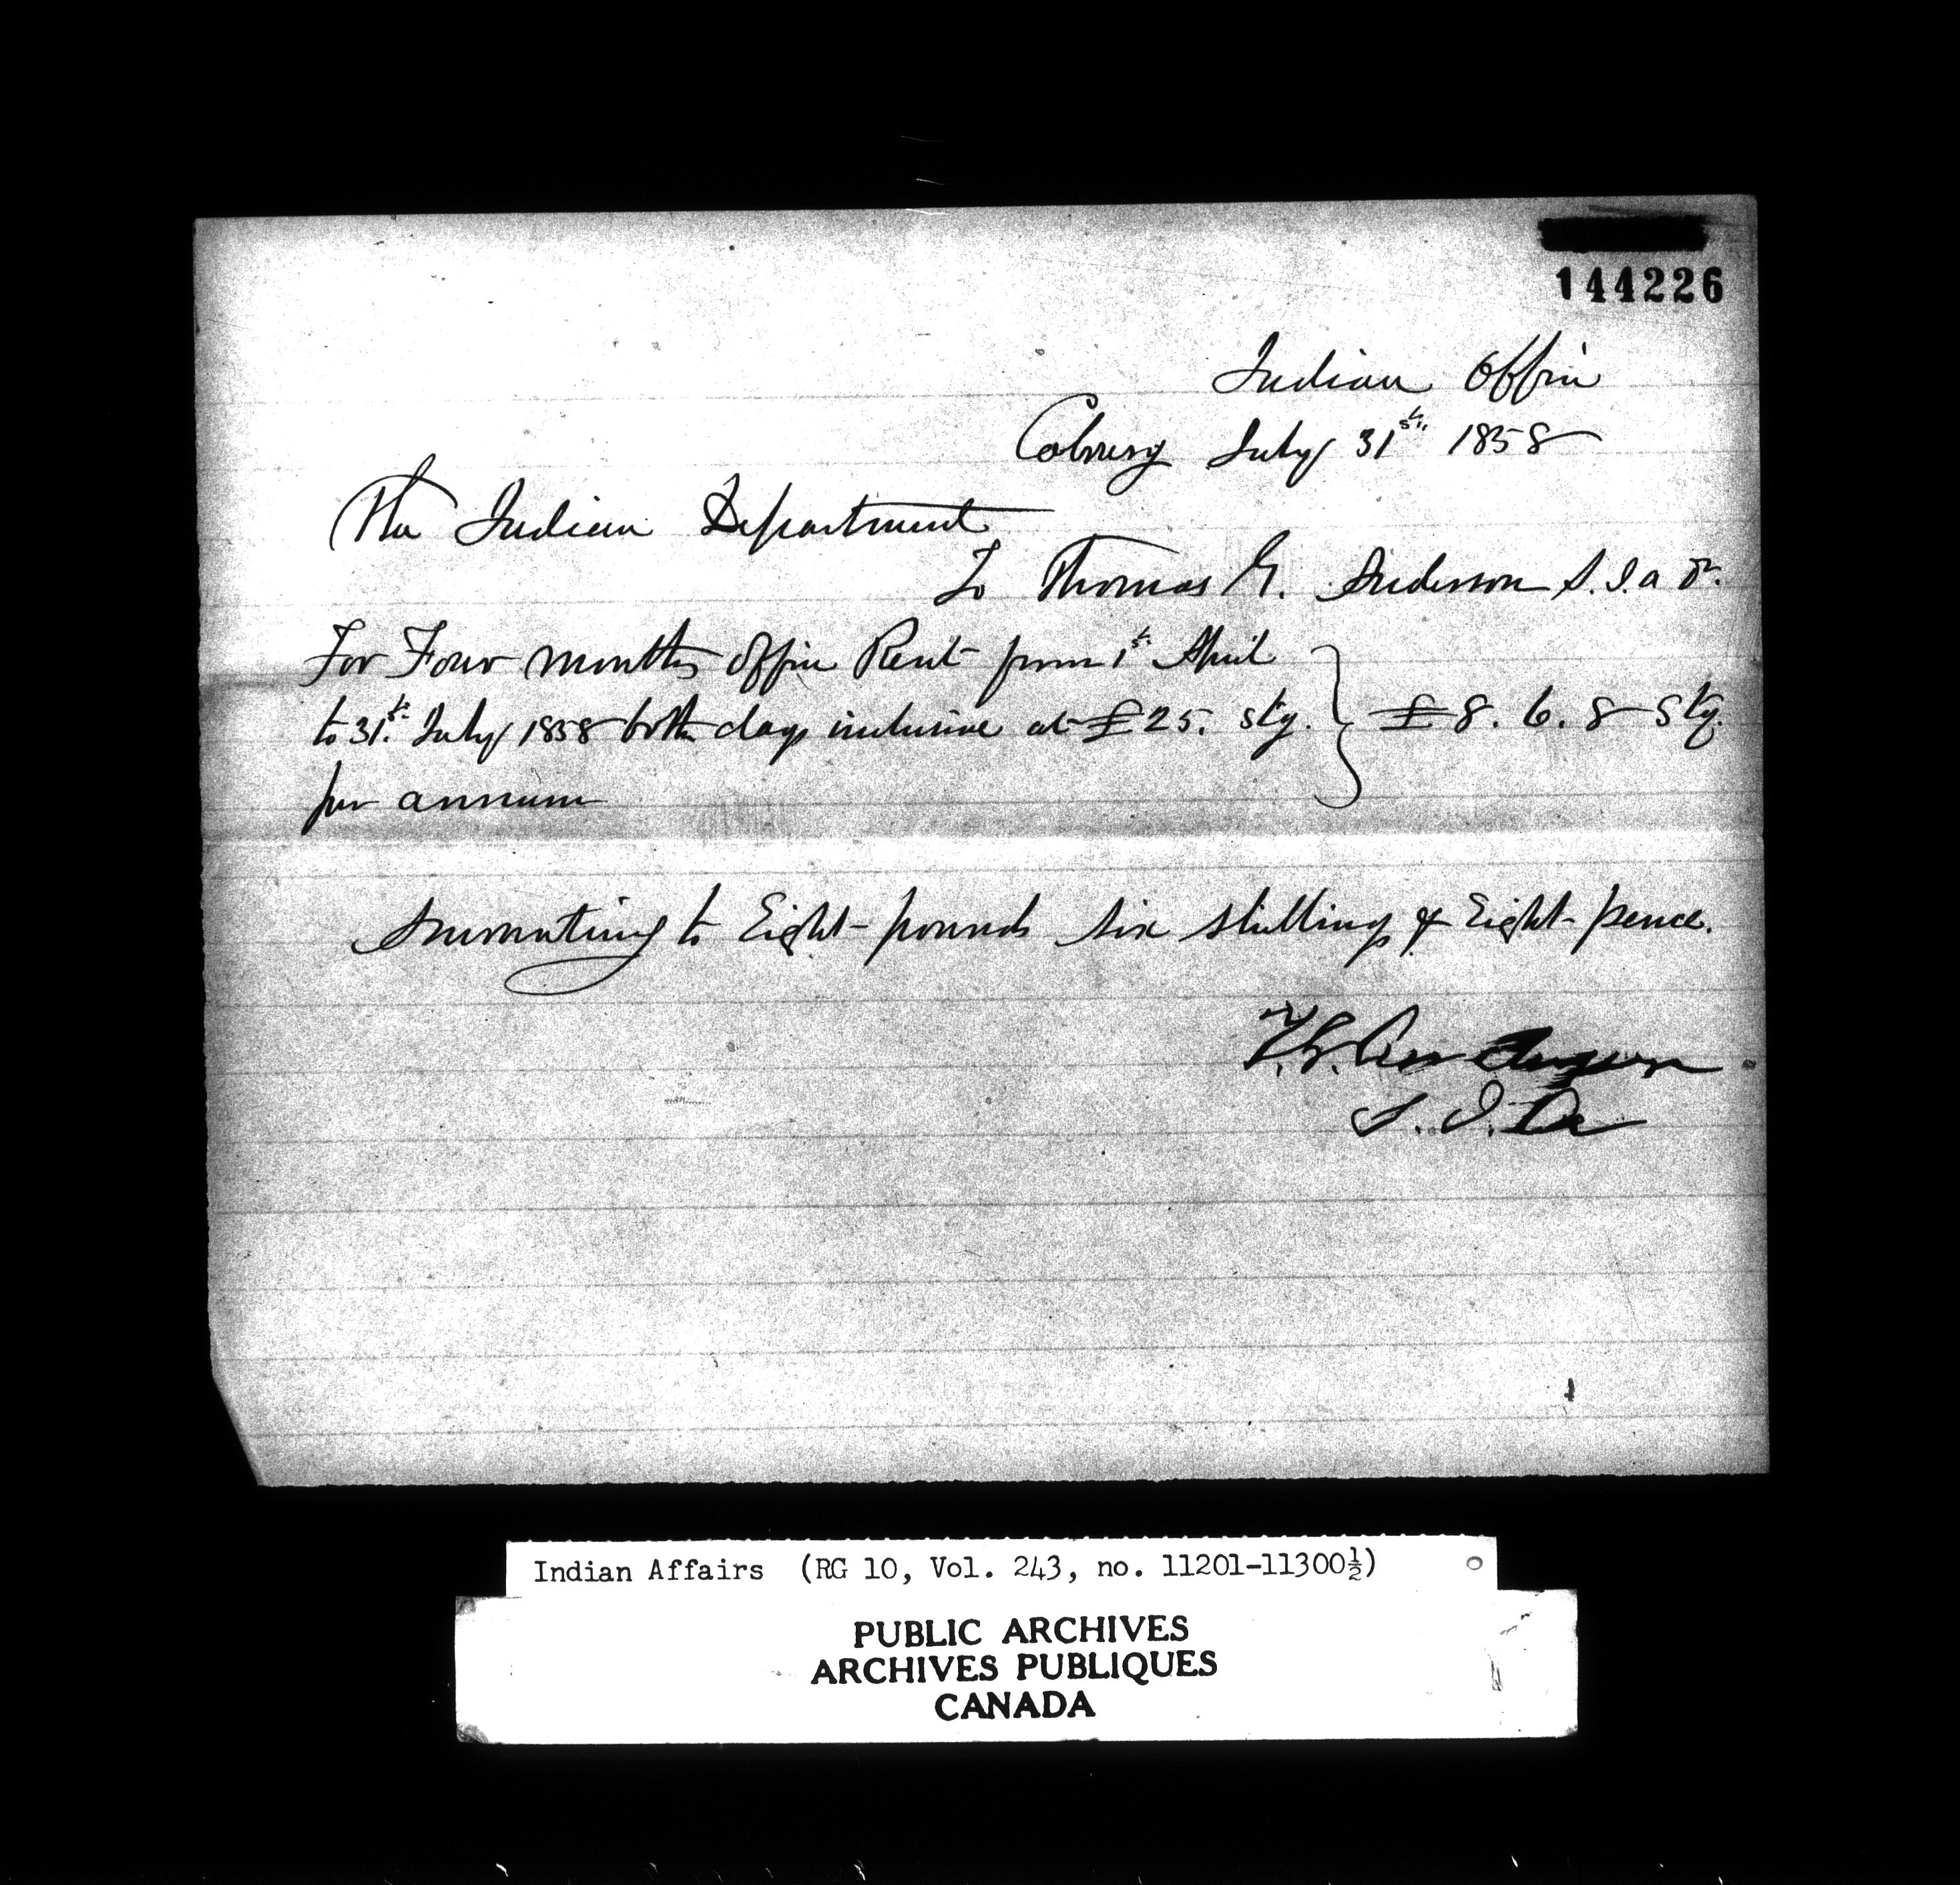 144226
Indian Office
Cobourg July 31st 1858
The Indian Department
To Thomas G. Anderson S.I.A Dr.
For Four months Office Rent from 1st April
to 31st July 1858 both days inclusive at £25. stg.
per annum
£8. 6. 8 Stg.
Amounting to Eight pounds six shillings & Eight pence.
T.G. Anderson
S.I.A
Indian Affairs (RG 10, Vol. 243, no. 11201-11300½)
PUBLIC ARCHIVES
ARCHIVES PUBLIQUES
CANADA